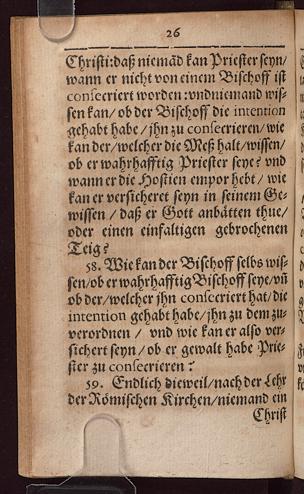 26
Christi: daß niemād kan Priester seyn/
wann er nicht von einem Bischoff ist
consecriert worden: vnd niemand wis-
sen kan/ ob der Bischoff die intention
gehabt habe/ jhn zu consecrieren/ wie
kan der/ welcher die Meß halt/ wissen/
ob er wahrhafftig Priester seye? vnd
wann er die Hostien empor hebt/ wie
kan er versicheret seyn in seinem Ge-
wissen/ daß er Gott anbätten thue/
oder einen einfaltigen gebrochenen
Teig?
58. Wie kan der Bischoff selbs wis-
sen/ ob er wahrhafftig Bischoff seye/ vñ
ob der/ welcher jhn consecriert hat/ die
intention gehabt habe/ jhn zu dem zu-
verordnen/ vnd wie kan er also ver-
sichert seyn/ ob er gewalt habe Prie-
ster zu consecrieren?
59. Endlich dieweil/ nach der Lehr
der Römischen Kirchen/ niemand ein
Christ